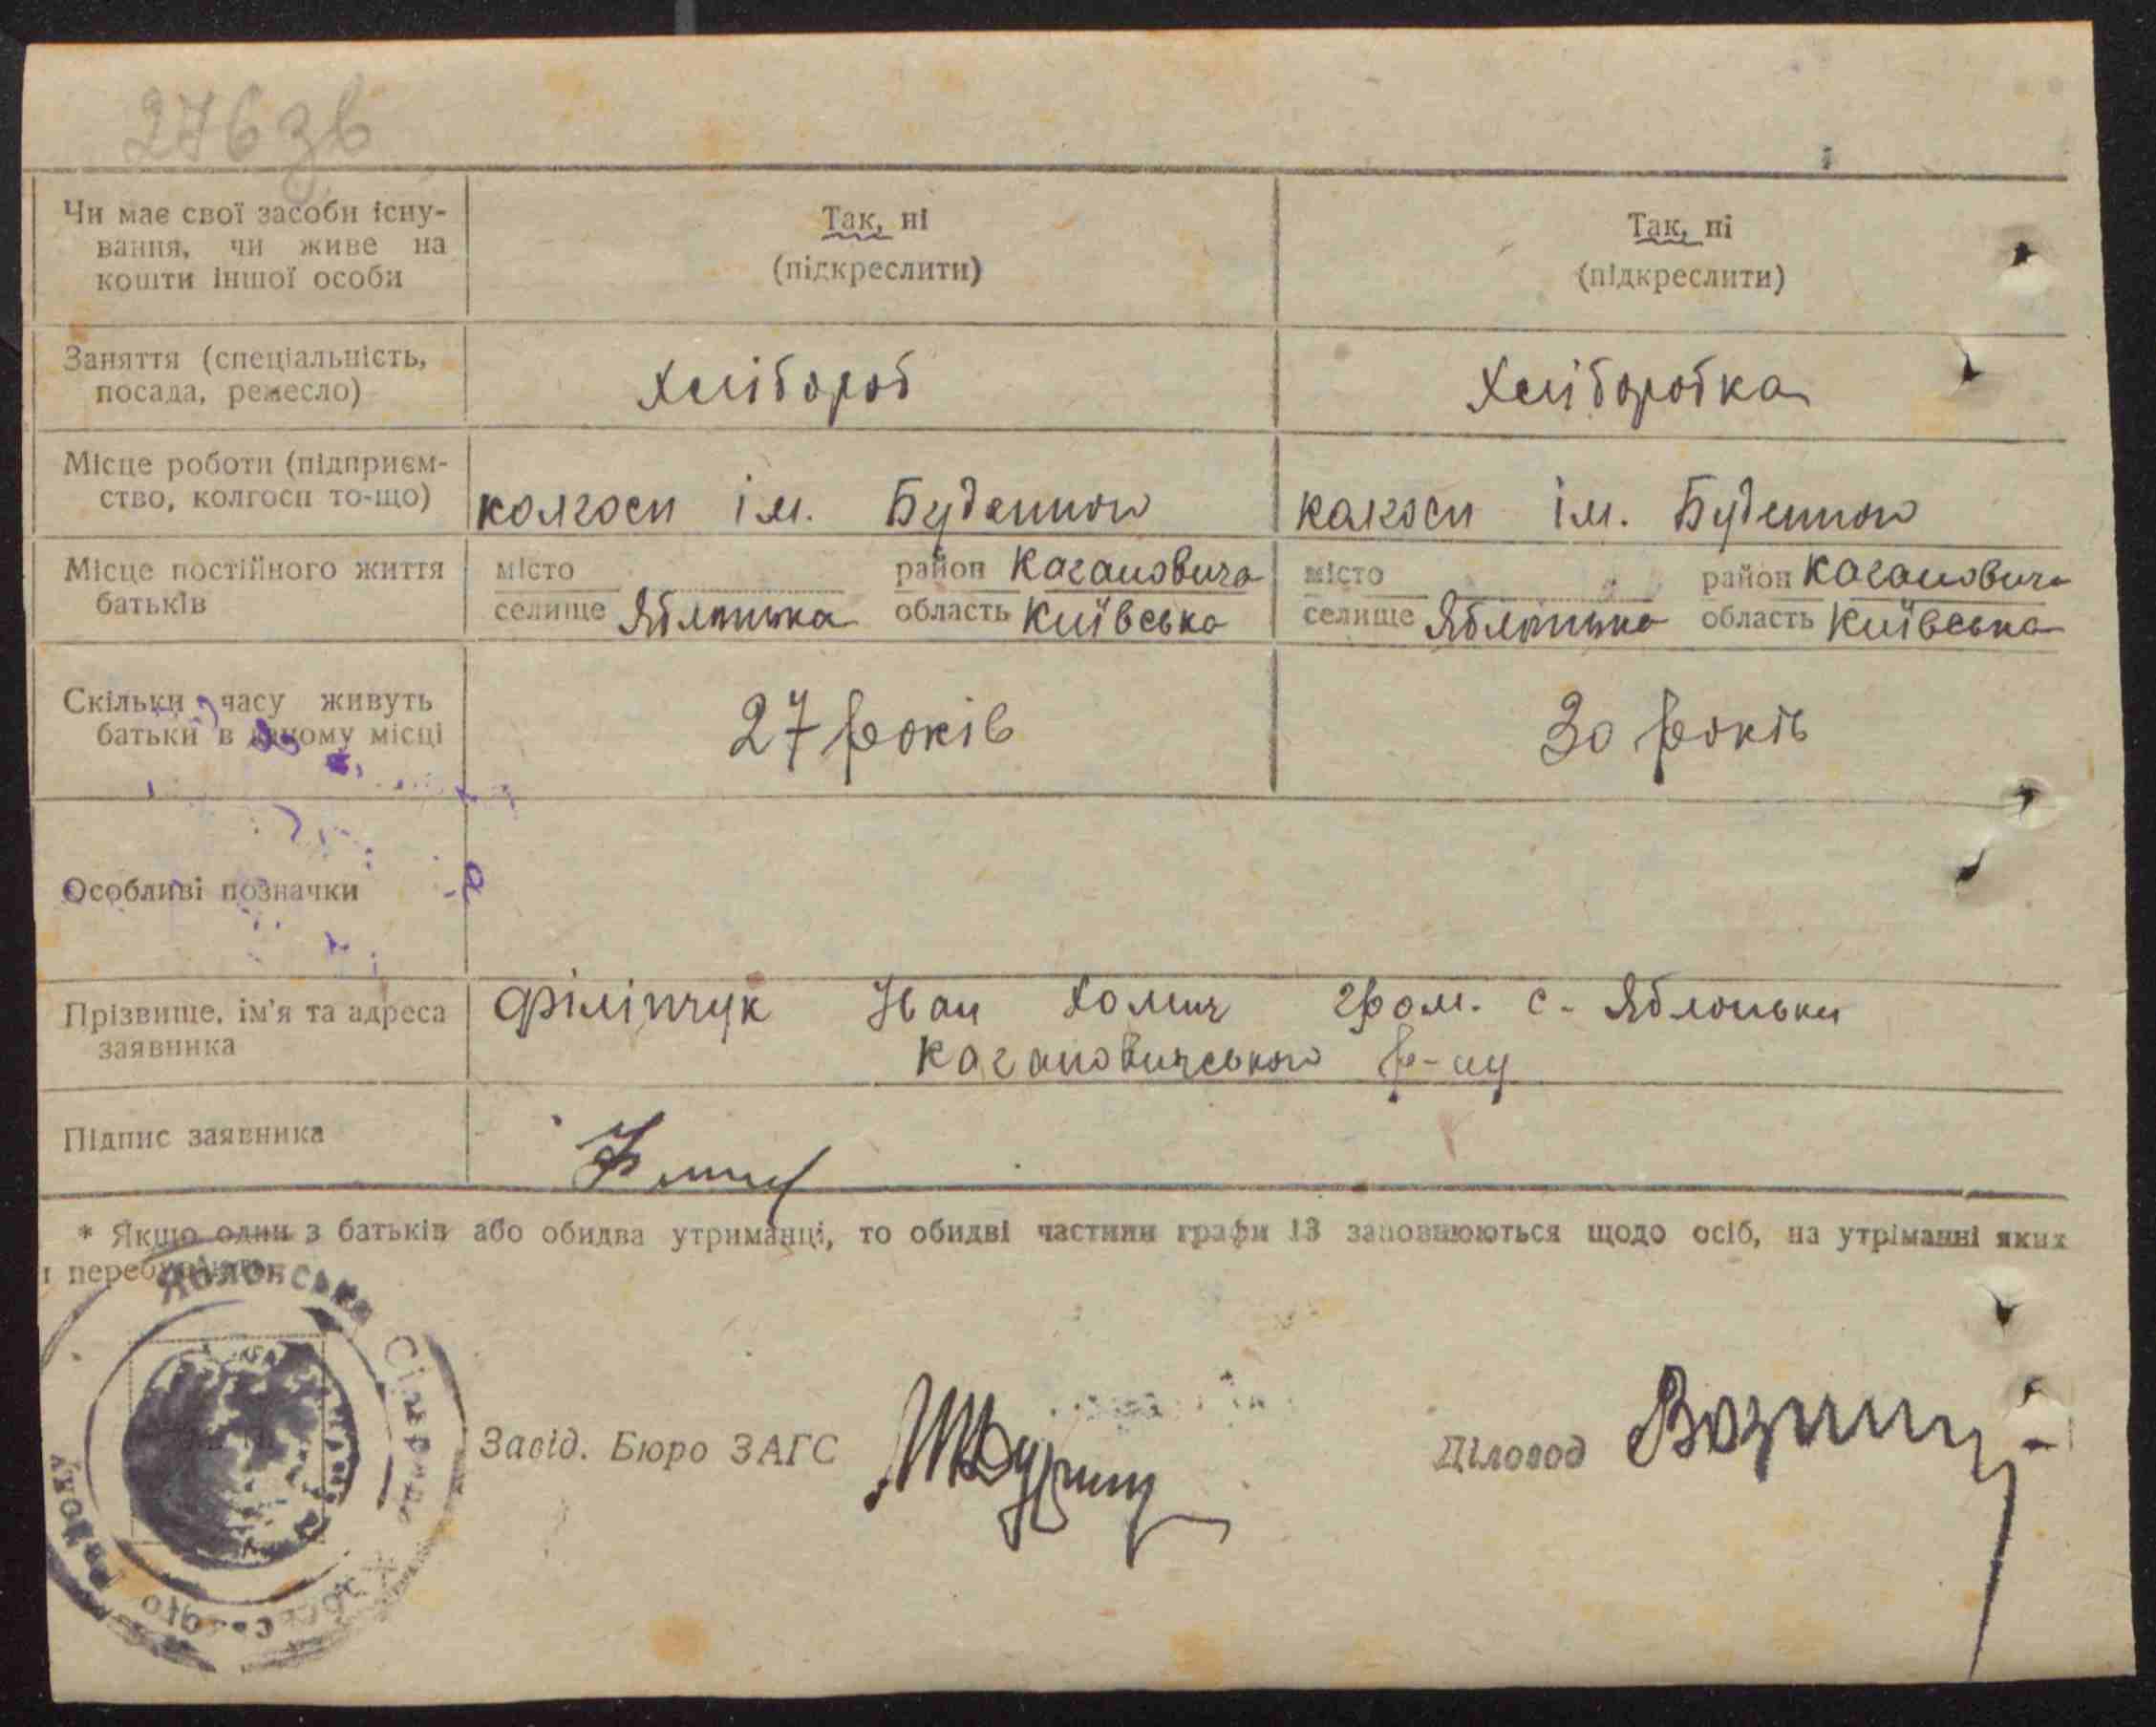 276зв
Чи має свої засоби існу-
вання, чи живе на
кошти іншої особи
Так, ні
(підкреслити)
Так, ні
(підкреслити)
Заняття (спеціальність,
посада, ремесло)
Хлібороб
Хліборобка
Місце роботи (підприєм-
ство, колгосп то-що)
колгосп ім. Буденного
колгосп ім. Буденного
Місце постійного життя
батьків
місто
район Кагановича
селище Яблонька
область Київська
місто
район Кагановича
селище Яблонька
область Київська
Скільки часу живуть
батьки в даному місці
27 років
30 років
Особливі позначки
Прізвище, ім'я та адреса
заявника
Філіпчук Іван Хомич гром. с. Яблоньки
Кагановичського р-ну
Підпис заявника
* Якщо один з батьків або обидва утриманці, то обидві частини графи 13 заповнюються щодо осіб, на утріманні яких
і перебувають.
Яблонська Сільрада
Завід. Бюро ЗАГС
Діловод